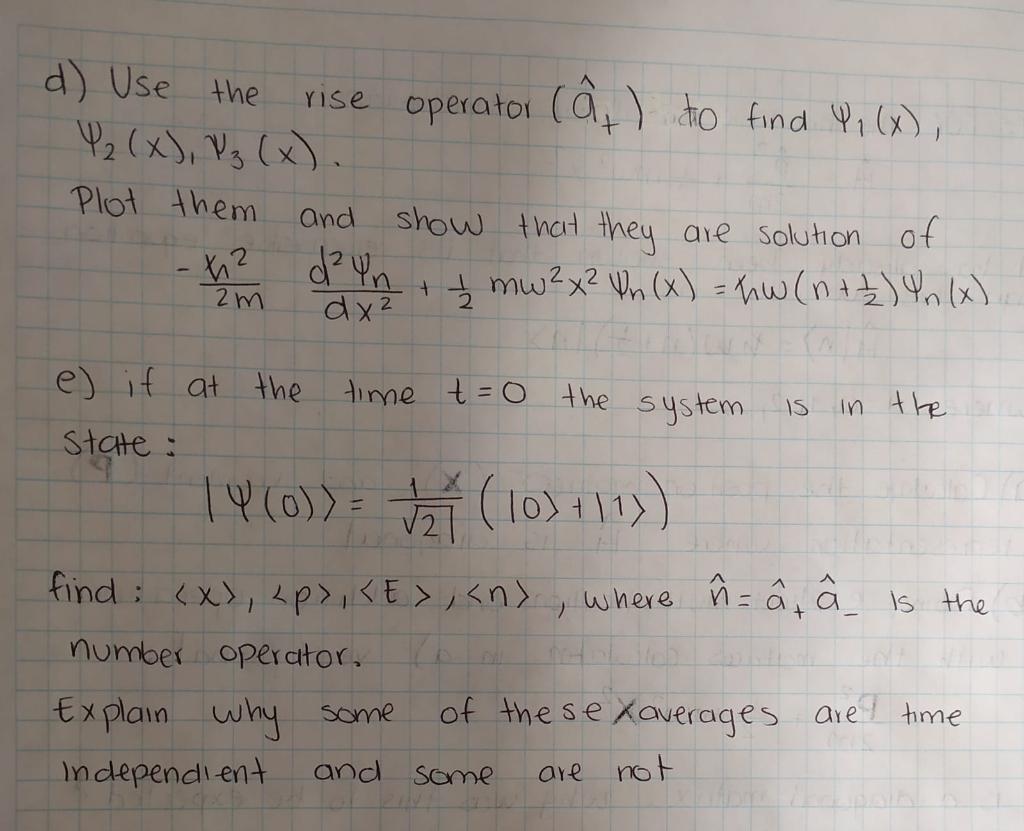 d) Use the rise operator (â₊) to find Ψ₁(x),
Ψ₂(x), Ψ₃(x).
Plot them and show that they are solution of
-ħ²/2m d²Ψn/dx² + 1/2 mw²x² Ψn(x) = ħw(n+1/2)Ψn(x)
e) if at the time t=0 the system is in the
state:
|Ψ(0)⟩ = 1/√2 (|0⟩+|1⟩)
find: <x>, <p>, <E>, <n>, where n̂ = â₊ â₋ is the
number operator.
Explain why some of these averages are time
independent and some are not